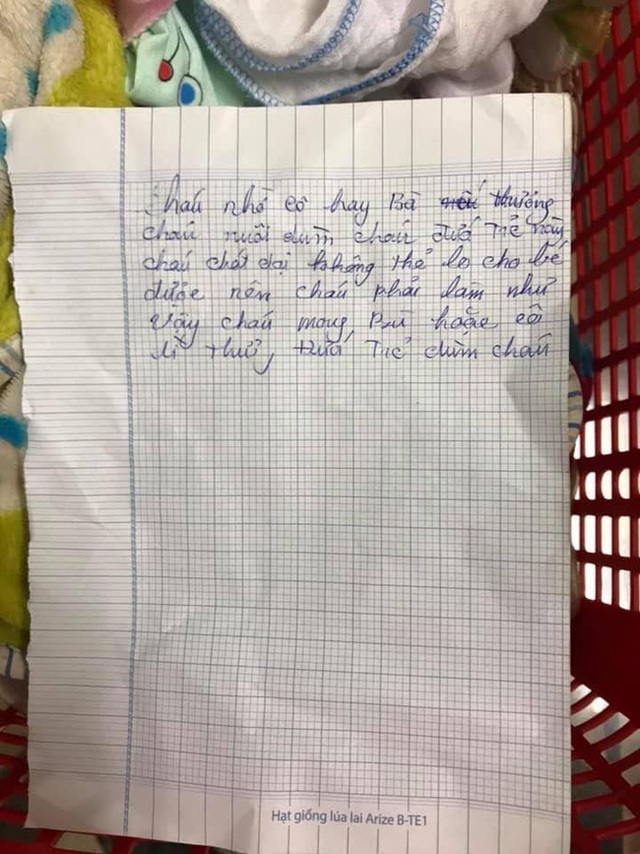 cháu nhờ cô hay Bà thương
cháu nuôi dùm cháu đứa Trẻ này
cháu chót dại không thể lo cho bé
được nên cháu phải làm như
vậy cháu mong Bà hoặc cô
đứa Trẻ dùm cháu
Hạt giống lúa lai Arize B-TE1